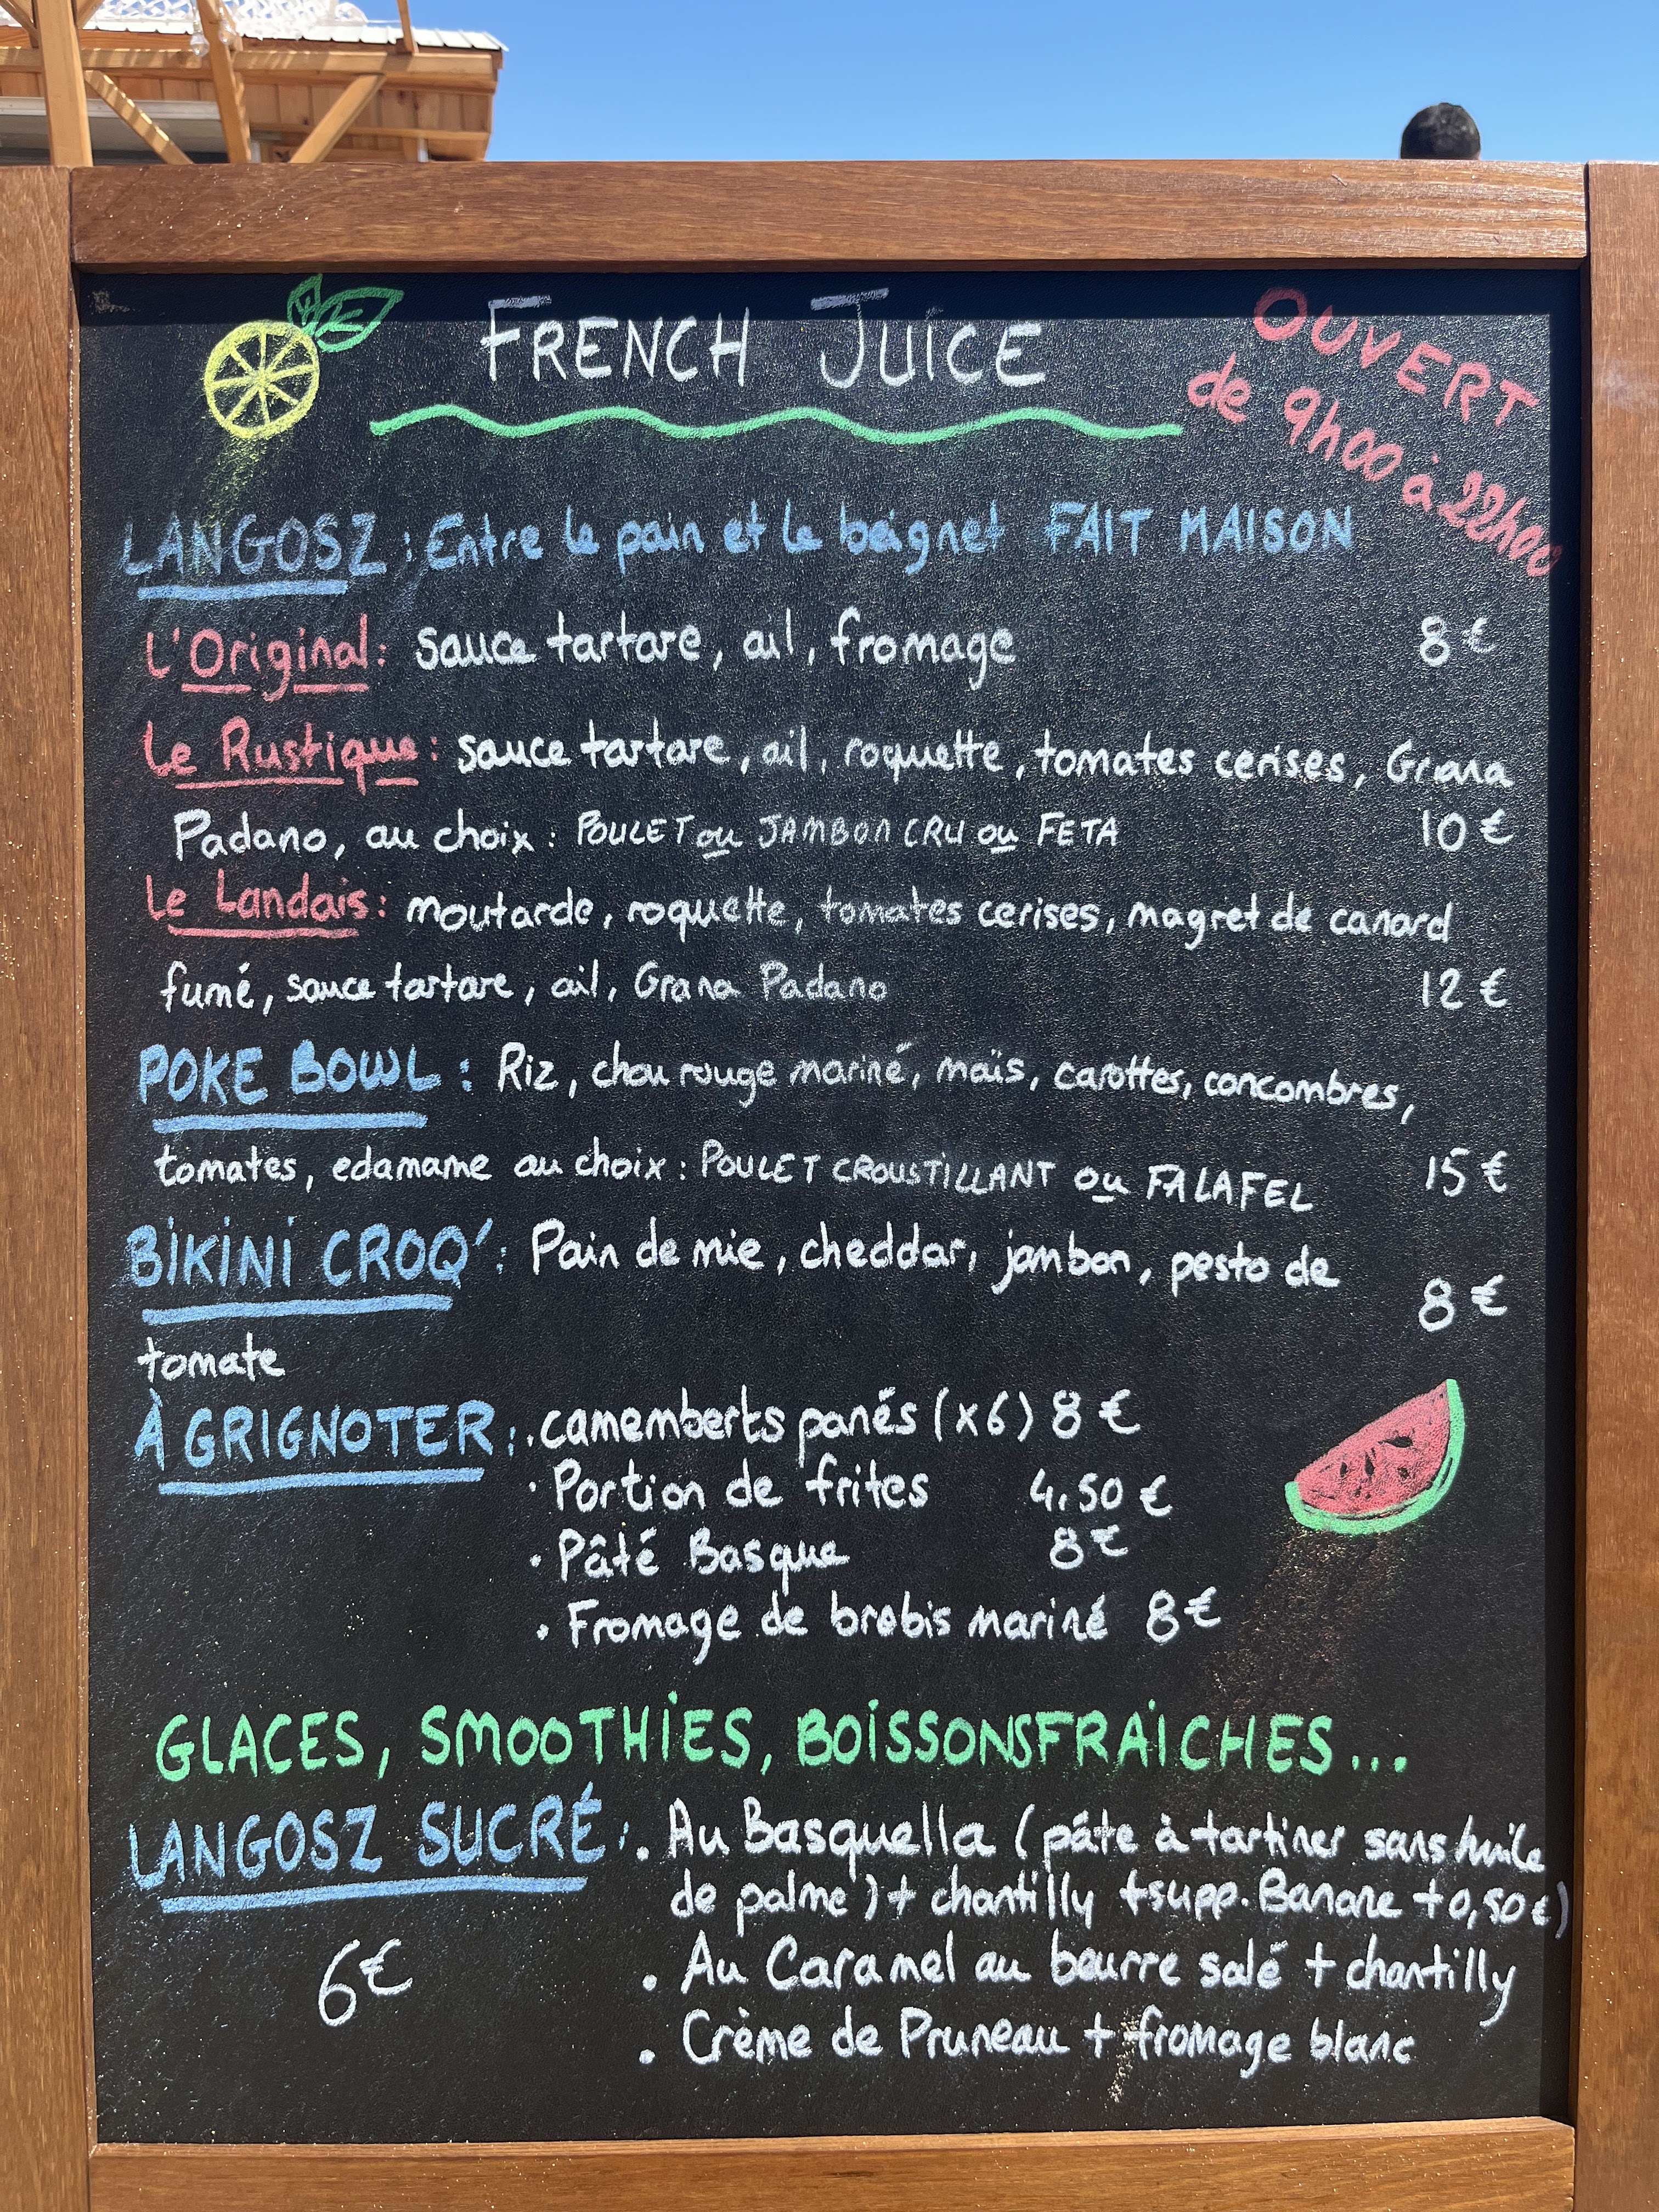 FRENCH JUICE
OUVERT
de 9h00 à 22h00
LANGOSZ : Entre le pain et le beignet FAIT MAISON
L'Original : sauce tartare, ail, fromage 8€
Le Rustique : sauce tartare, ail, roquette, tomates cerises, Grana
Padano, au choix : POULET ou JAMBON CRU ou FETA 10€
Le Landais : moutarde, roquette, tomates cerises, magret de canard
fumé, sauce tartare, ail, Grana Padano 12€
POKE BOWL : Riz, chou rouge mariné, maïs, carottes, concombres,
tomates, edamame au choix : POULET CROUSTILLANT ou FALAFEL 15€
BIKINI CROQ' : Pain de mie, cheddar, jambon, pesto de 8€
tomate
À GRIGNOTER : • camemberts panés (x6) 8€
• Portion de frites 4.50€
• Pâté Basque 8€
• Fromage de brebis mariné 8€
GLACES, SMOOTHIES, BOISSONSFRAICHES...
LANGOSZ SUCRÉ : • Au Basquella (pâte à tartiner sans huile
de palme) + chantilly +supp. Banane +0,50€)
6€ • Au Caramel au beurre salé + chantilly
• Crème de Pruneau + fromage blanc